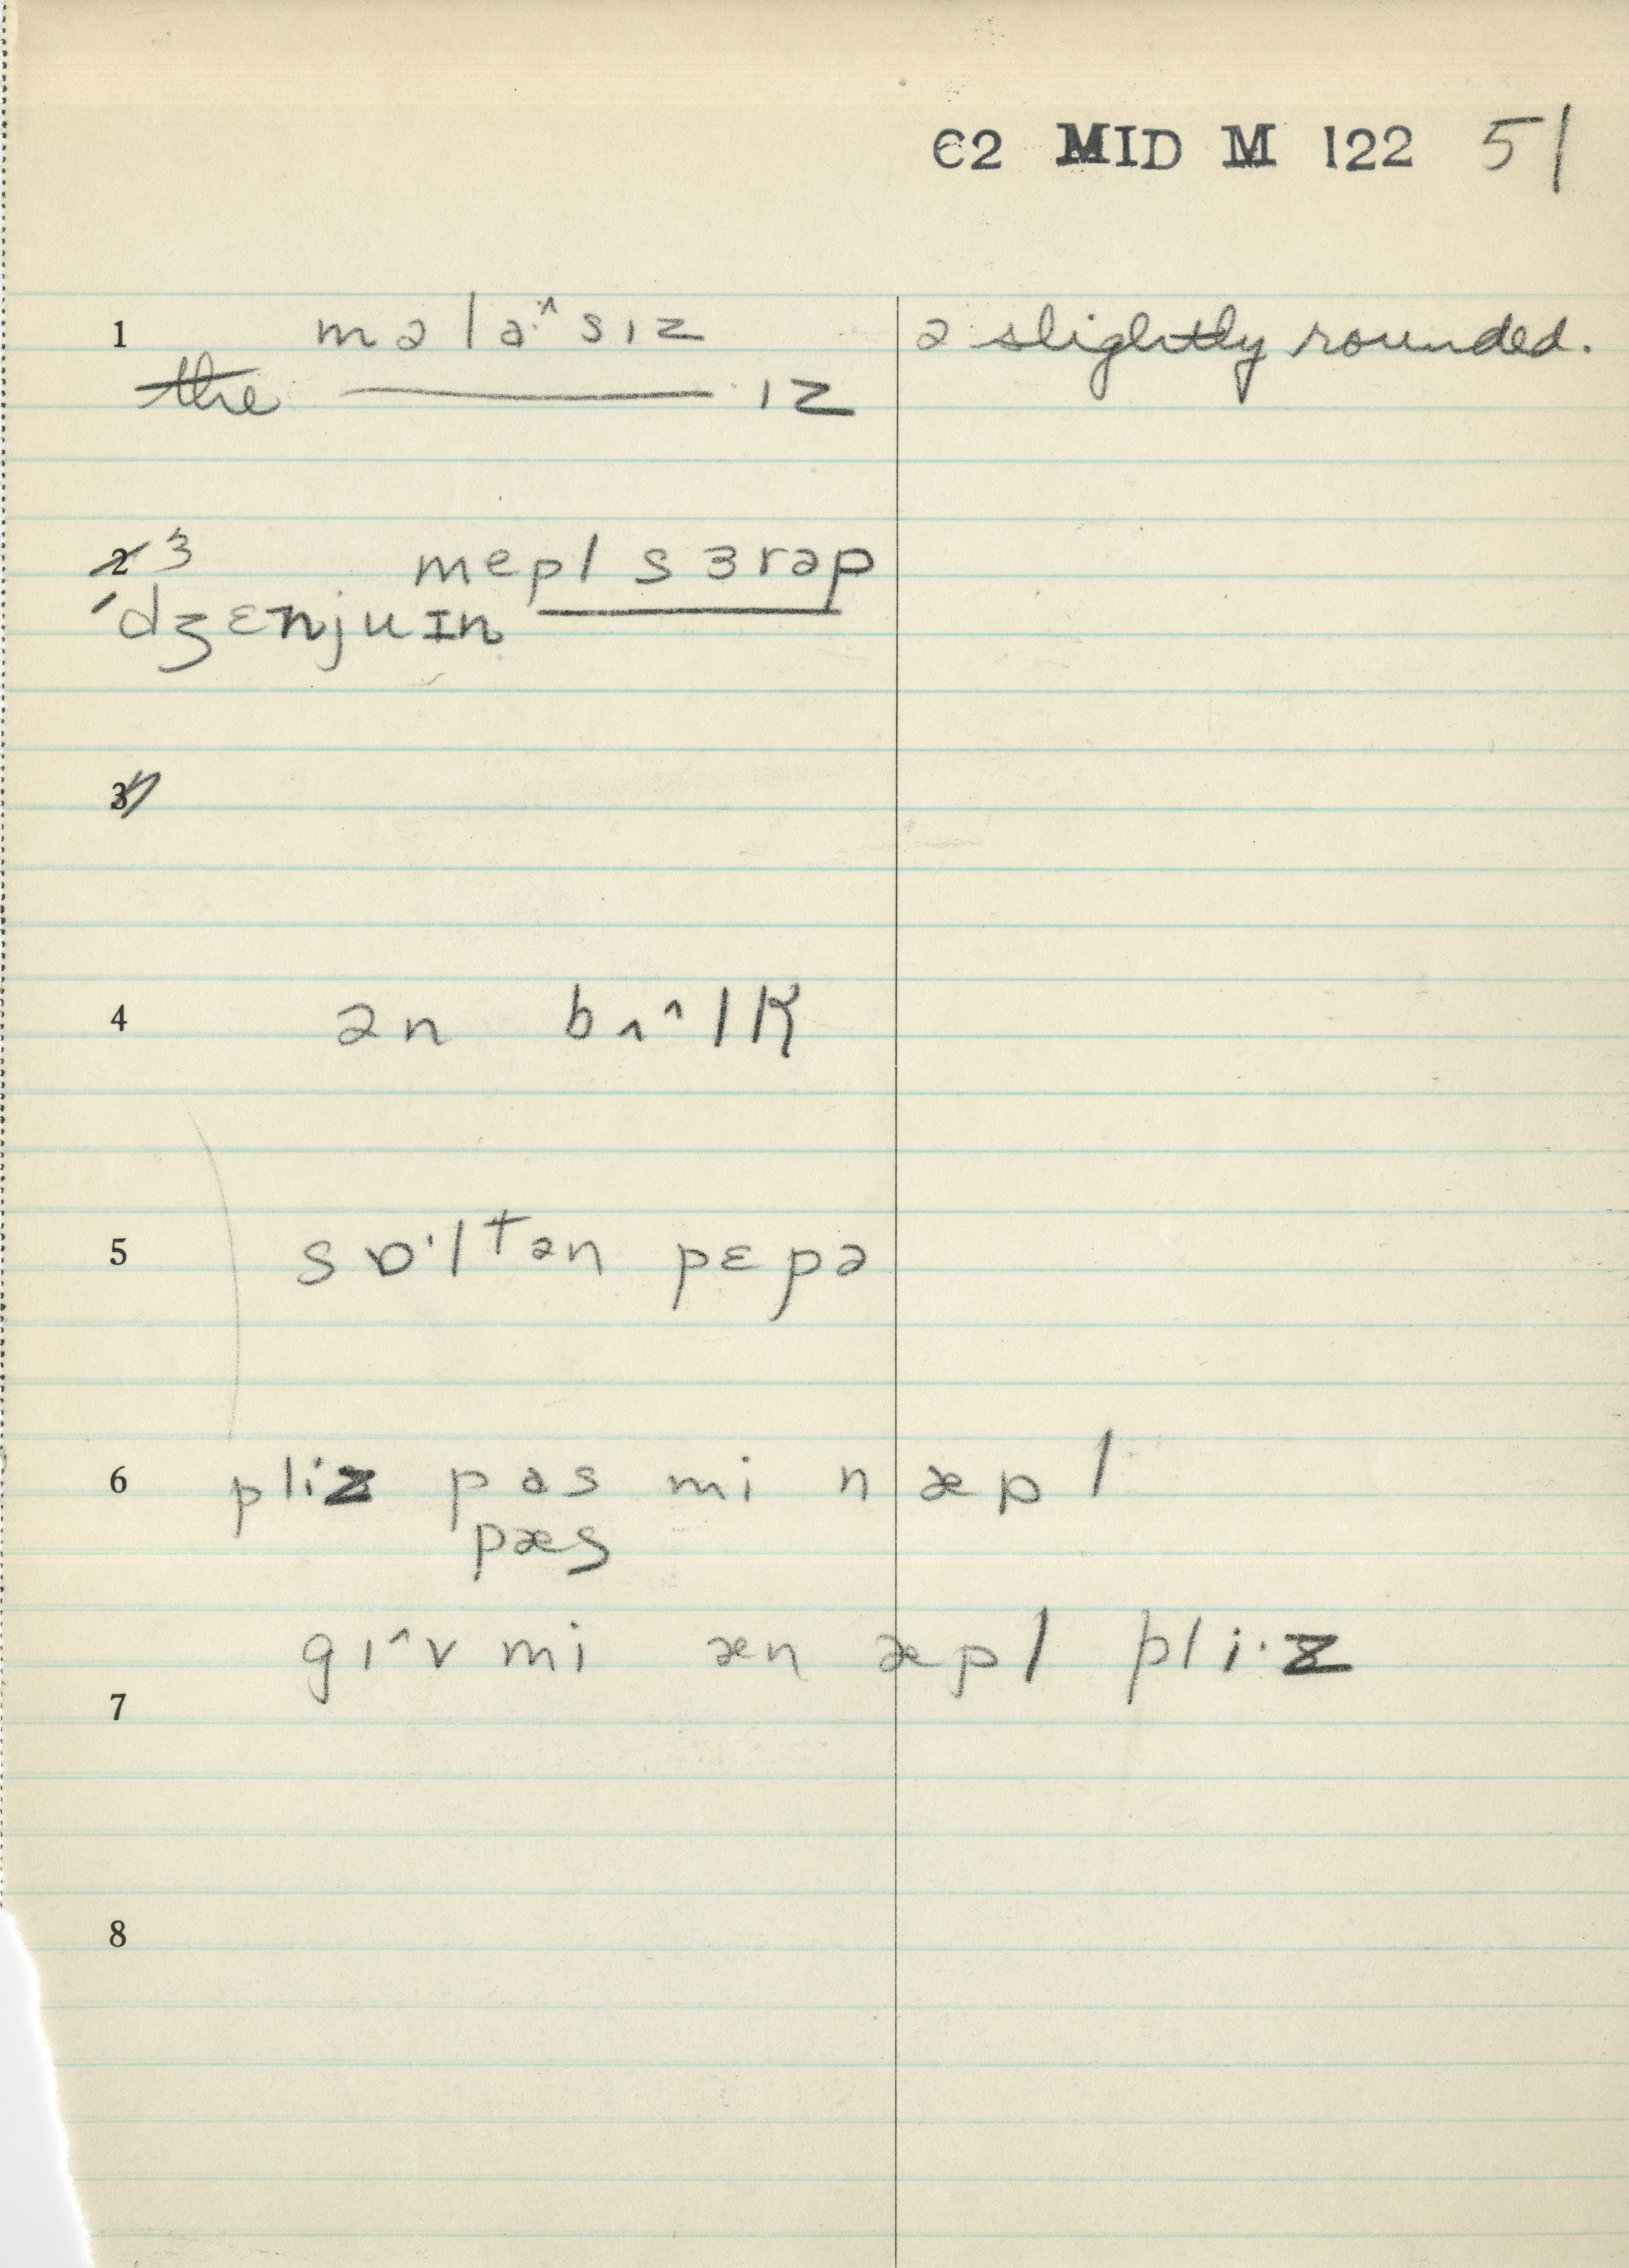 C2 MID M 122 51
1 məla·^sɪz ə slightly rounded.
the ———— ɪz
2 3 mepl sɜrəp
'dʒɛnjuɪn ————
3
4 ən bʌ^lk
5 sɒ'ltən pɛpə
6 pliz pas mi n æpl
pæs
gɪ^v mi æn æpl pli·z
7
8